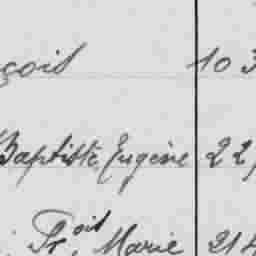 çois 103
Baptiste Eugène 22
Fr.ois Marie 214